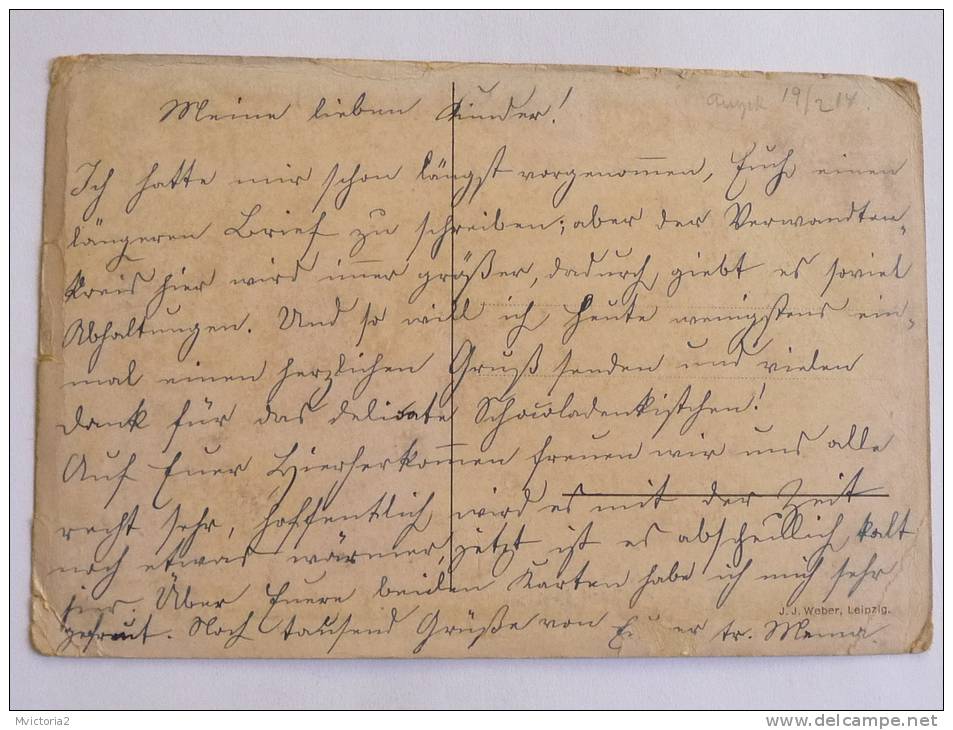 19/2 14.
Meine lieben Kinder!
Ich hatte mir schon längst vorgenommen, Euch einen
längeren Brief zu schreiben; aber der Verwandten-
kreis hier wird immer größer, dadurch giebt es soviel
Abhaltungen. Und so will ich heute wenigstens ein-
mal einen herzlichen Gruß senden und vielen
Dank für das delicate Schocoladenkistchen!
Auf Euer Hierherkommen freuen wir uns alle
recht sehr, hoffentlich wird es mit der Zeit
noch etwas wärmer, jetzt ist es abscheulich kalt
hier. Über Euere beiden Karten habe ich mich sehr
gefreut. Noch tausend Grüße von Eurer tr. Mama.
J. J. Weber, Leipzig.
Mvictoria2
www.delcampe.net